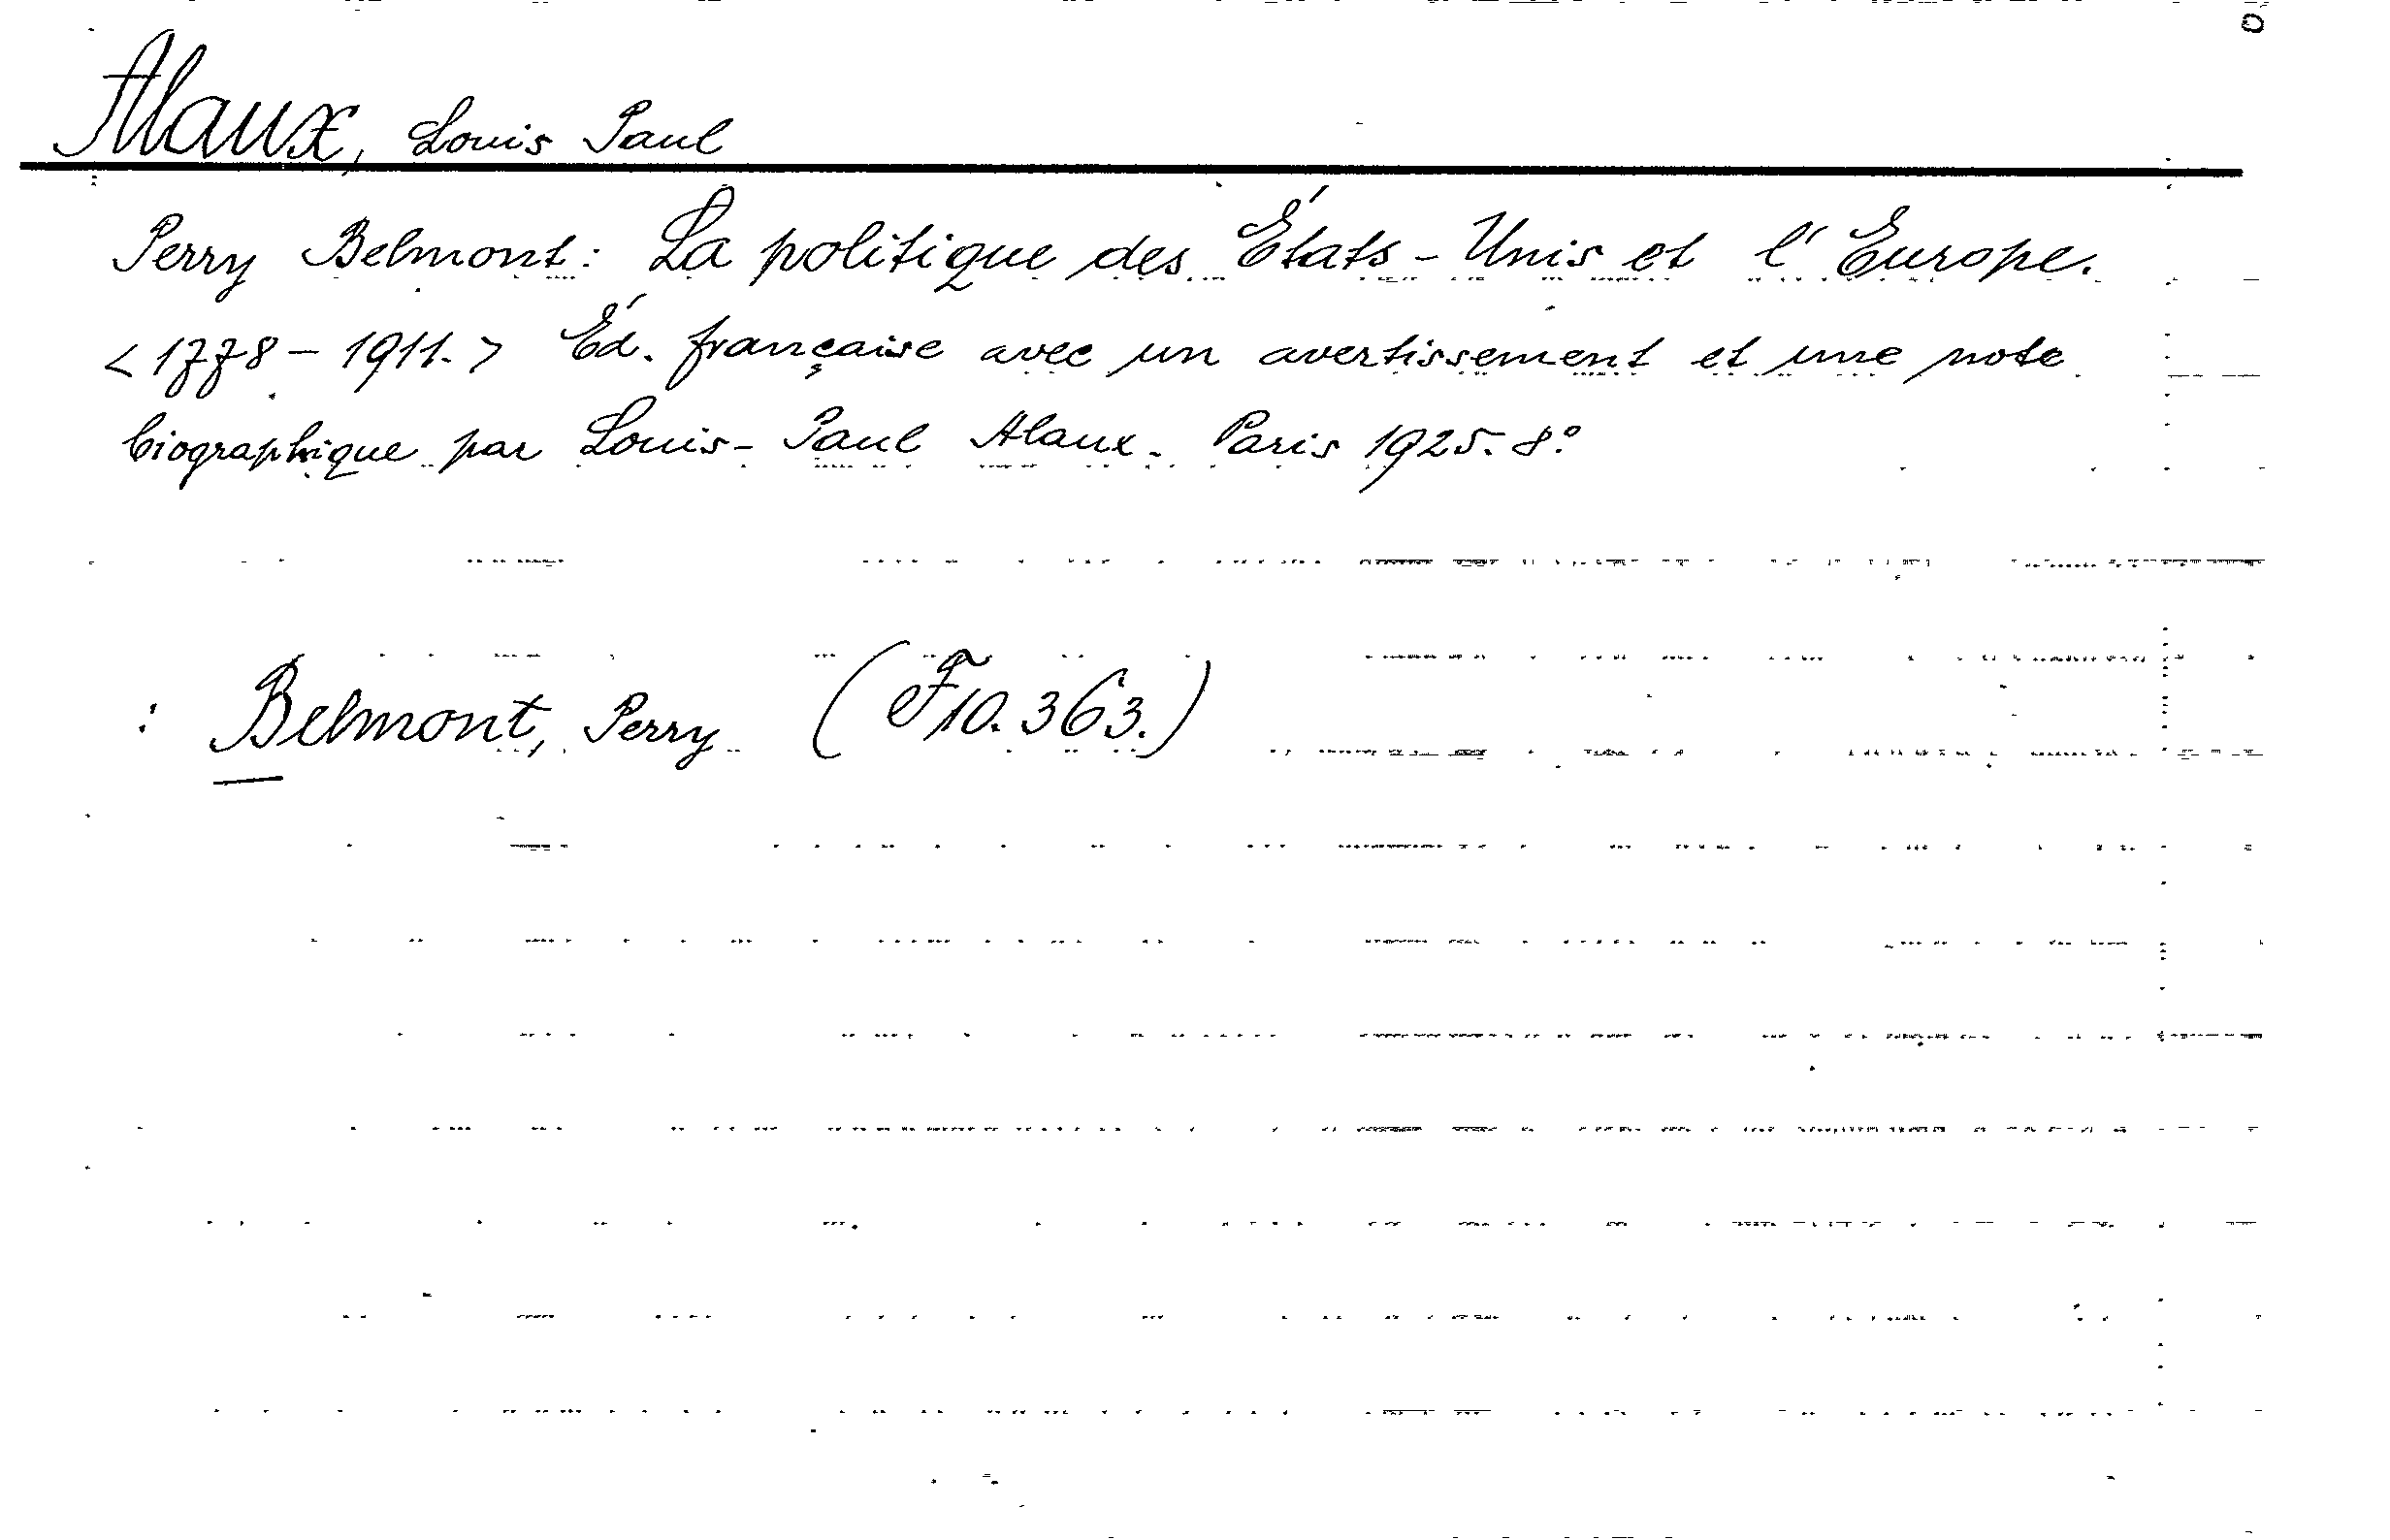 Alaux, Louis Paul
Perry Belmont: La politique des États-Unis et l'Europe.
<1778-1911.> Éd. française avec un avertissement et une note
biographique par Louis-Paul Alaux. Paris 1925. 8°
: Belmont, Perry (F10.363.)